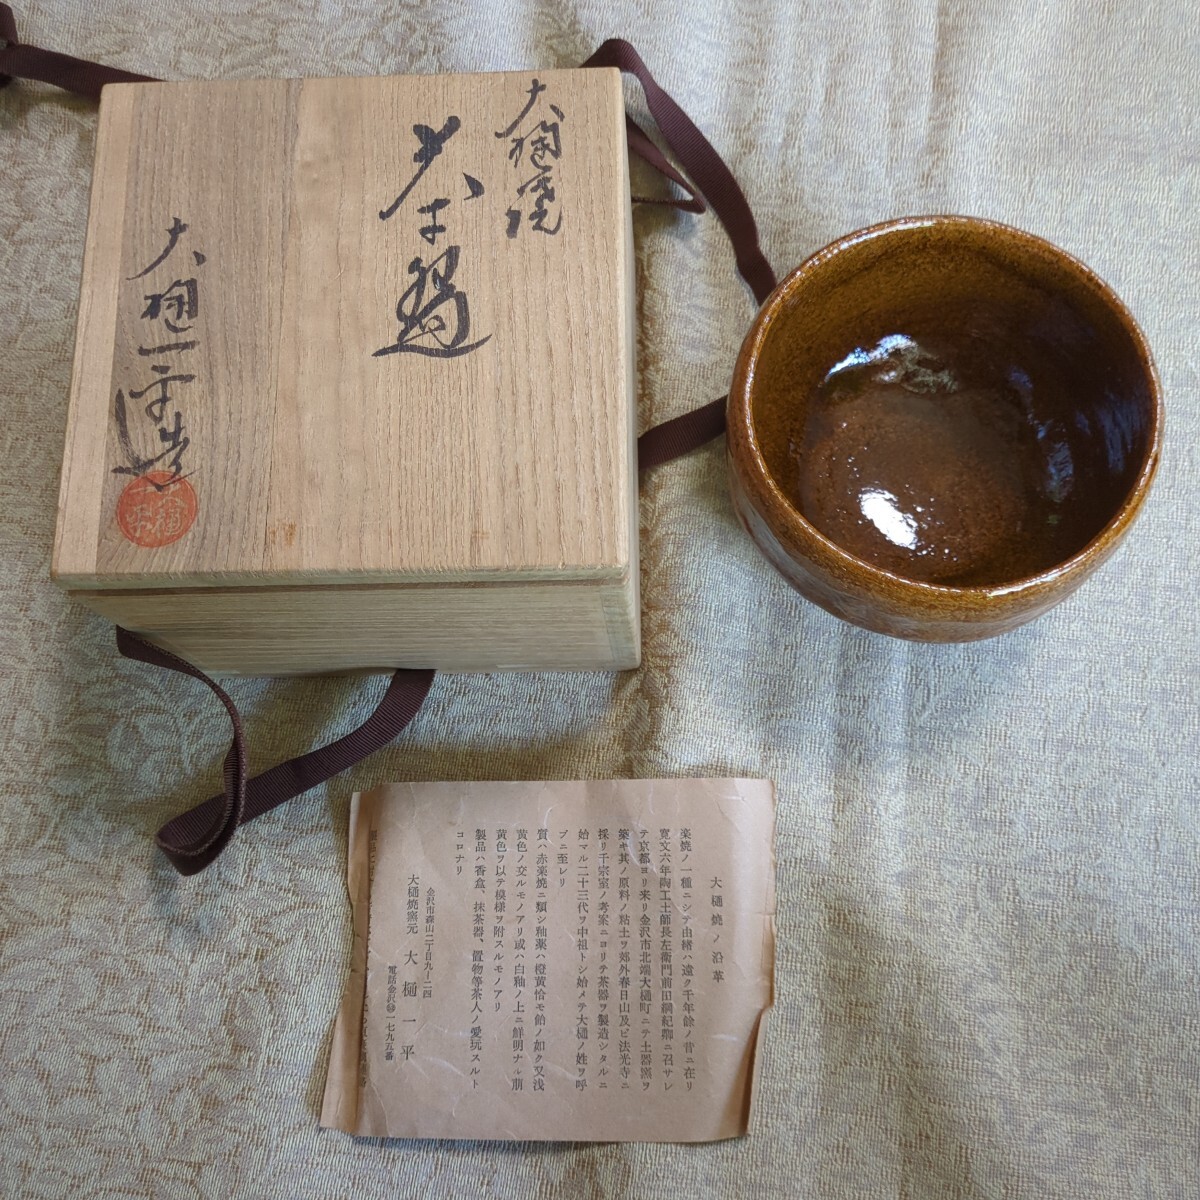 大樋焼
茶盌
大樋一平造
大樋燒ノ沿革
楽燒ノ一種ニシテ由緒ハ遠ク千年餘ノ昔ニ在リ
寛文六年陶工土師長左衛門前田綱紀鄕ニ召サレ
テ京都ヨリ来リ金沢市北端大樋町ニテ土器窯ヲ
築キ其ノ原料ノ粘土ヲ郊外春日山及ビ法光寺ニ
採リ千宗室ノ考案ニヨリテ茶器ヲ製造シタルニ
始マル二十三代ヲ中祖トシ始メテ大樋ノ姓ヲ呼
ブニ至レリ
質ハ赤楽燒ニ類シ釉薬ハ橙黄恰モ飴ノ如ク又浅
黄色ノ交ルモノアリ或ハ白釉ノ上ニ鮮明ナル萠
黄色ヲ以テ模様ヲ附スルモノアリ
製品ハ香盒、抹茶器、置物等茶人ノ愛玩スルト
コロナリ
金沢市森山二丁目九ー二四
大樋燒窯元 大樋一平
電話金沢 一七九五番